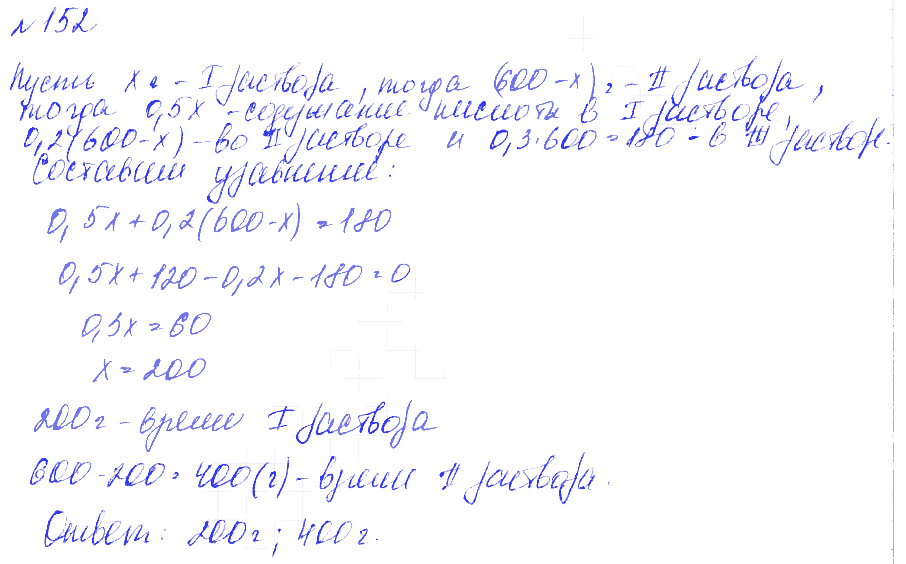 №152
Пусть x г - I раствора, тогда (600-x) г - II раствора,
тогда 0,5x - содержание кислоты в I растворе,
0,2(600-x) - во II растворе и 0,3·600=180 - в III растворе.
Составим уравнение:
0,5x+0,2(600-x)=180
0,5x+120-0,2x-180=0
0,3x=60
x=200
200г - время I раствора
600-200=400(г) - время II раствора.
Ответ: 200г; 400г.